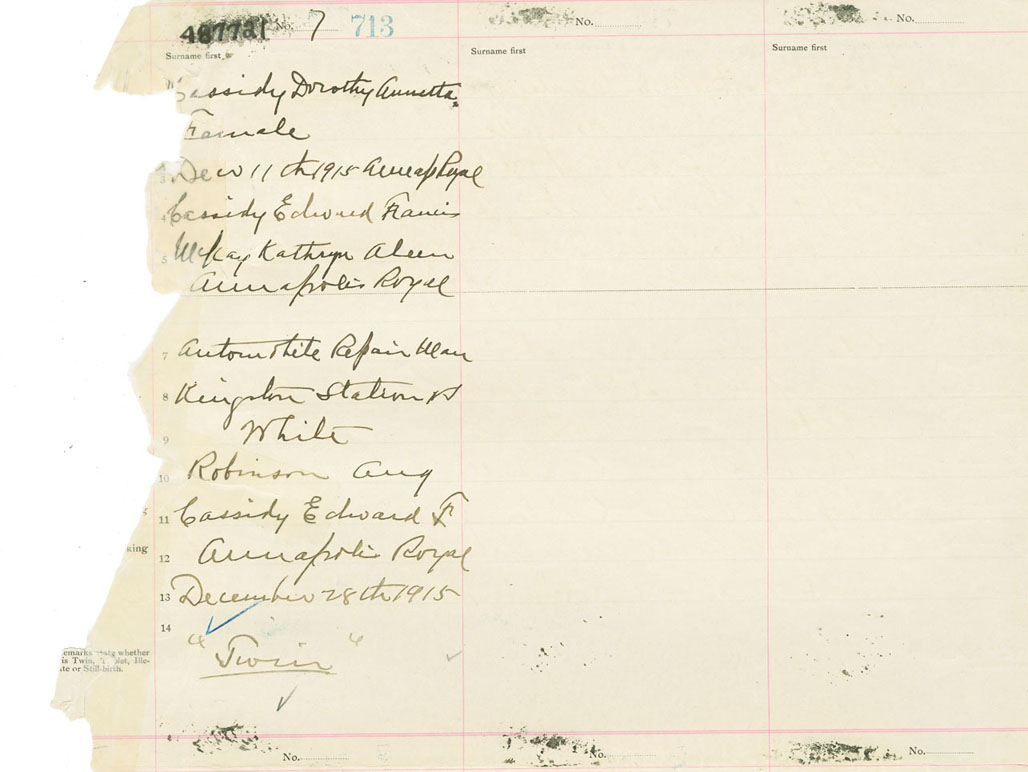 No. 7 713
No.
No.
Surname first
Surname first
Surname first
Cassidy Dorothy Annetta
Female
3 Dec 11th 1915 Annap Royal
4 Cassidy Edward Francis
5 McKay Kathryn Aleen
Annapolis Royal
7 Automobile Repair Man
8 Kingston Station NS
9 White
10 Robinson Aug
11 Cassidy Edward F
king
12 Annapolis Royal
13 December 28th 1915
14
emarks whether
is Twin, Ille-
ate or Still-birth.
"Twin"
No.
No.
No.